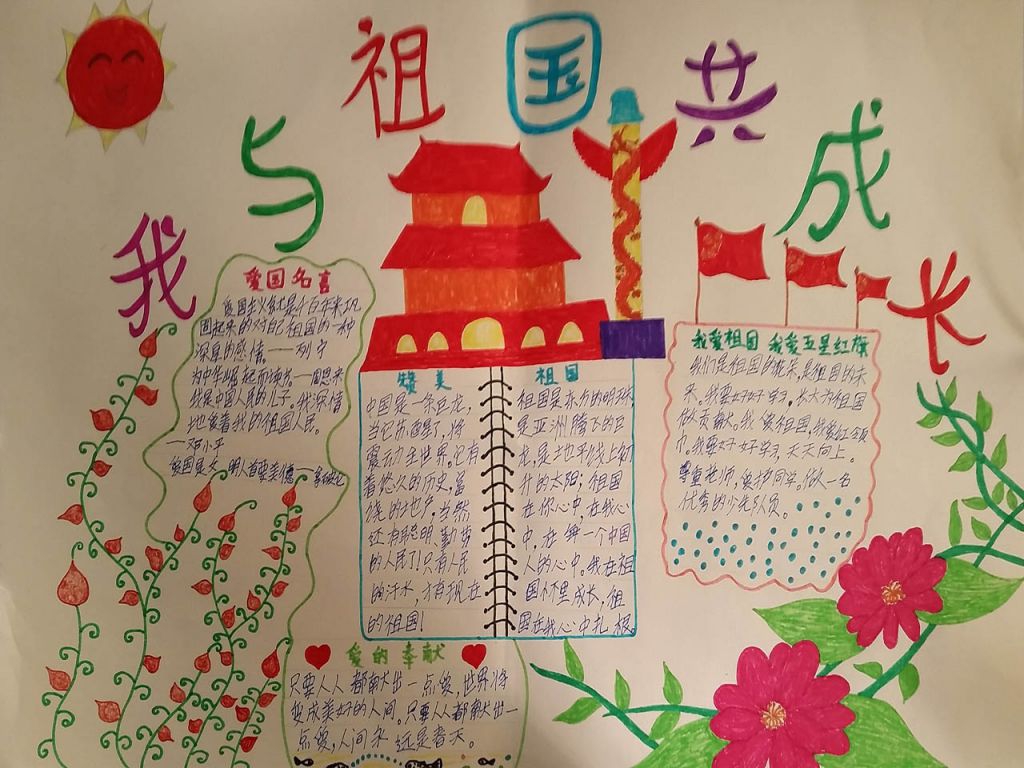 我与祖国共成长
爱国名言
爱国主义就是千百年来巩
固起来的对自己祖国的一种
深厚的感情——列宁
为中华崛起而读书。—周恩来
我是中国人民的儿子,我深情
地爱着我的祖国人民。
—邓小平
爱国是文明人首要美德—拿破仑
赞美
中国是一条巨龙,
当它苏醒了,将
震动全世界。它有
着悠久的历史,富
饶的土地,当然
还有聪明、勤劳
的人民了!只有人民
的汗水,才有现在
的祖国!
祖国
祖国是东方的明珠,
是亚洲腾飞的巨
龙,是地平线上初
升的太阳;祖国
在你心中,在我心
中,在每一个中国
人的心中。我在祖
国怀里成长,祖
国在我心中扎根
我爱祖国 我爱五星红旗
我们是祖国的花朵,是祖国的未
来,我要好好学习。长大为祖国
做贡献。我爱祖国,我爱红领
巾。我要好好学习,天天向上。
尊重老师,爱护同学。做一名
优秀的少先队员。
爱的奉献
只要人人都献出一点爱,世界将
变成美好的人间。只要人人都献出一
点爱,人间来 还是春天。